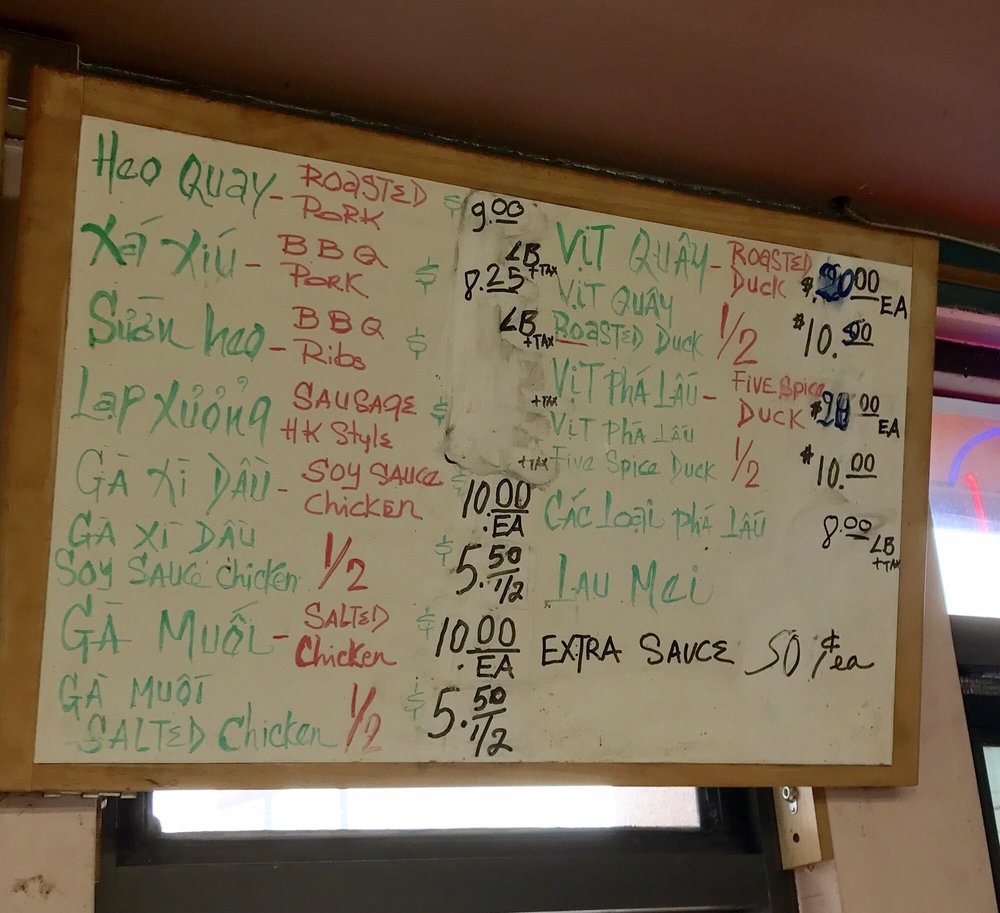 Heo Quay - ROASTED PORK $ 9.00 LB +TAX
Xá Xíu - BBQ PORK $ 8.25 LB +TAX
Sườn heo - BBQ Ribs $ +TAX
Lạp Xưởng SAUSAGE HK Style $ +TAX
GÀ XÌ DẦU - SOY SAUCE CHICKEN $ 10.00 EA
GÀ XÌ DẦU
SOY SAUCE Chicken 1/2 $ 5.50 1/2
GÀ MUỐI - SALTED Chicken $ 10.00 EA
GÀ MUỐI
SALTED Chicken 1/2 $ 5.50 1/2
VỊT QUÂY - ROASTED DUCK $ 20.00 EA
VỊT QUÂY
ROASTED DUCK 1/2 $ 10.00
VỊT PHÁ LẤU - FIVE SPICE DUCK $ .00 EA
VỊT PHÁ LẤU
Five Spice Duck 1/2 $ 10.00
CÁC LOẠI PHÁ LẤU 8.00 LB +TAX
LAU MEI
EXTRA SAUCE 50 ¢ ea